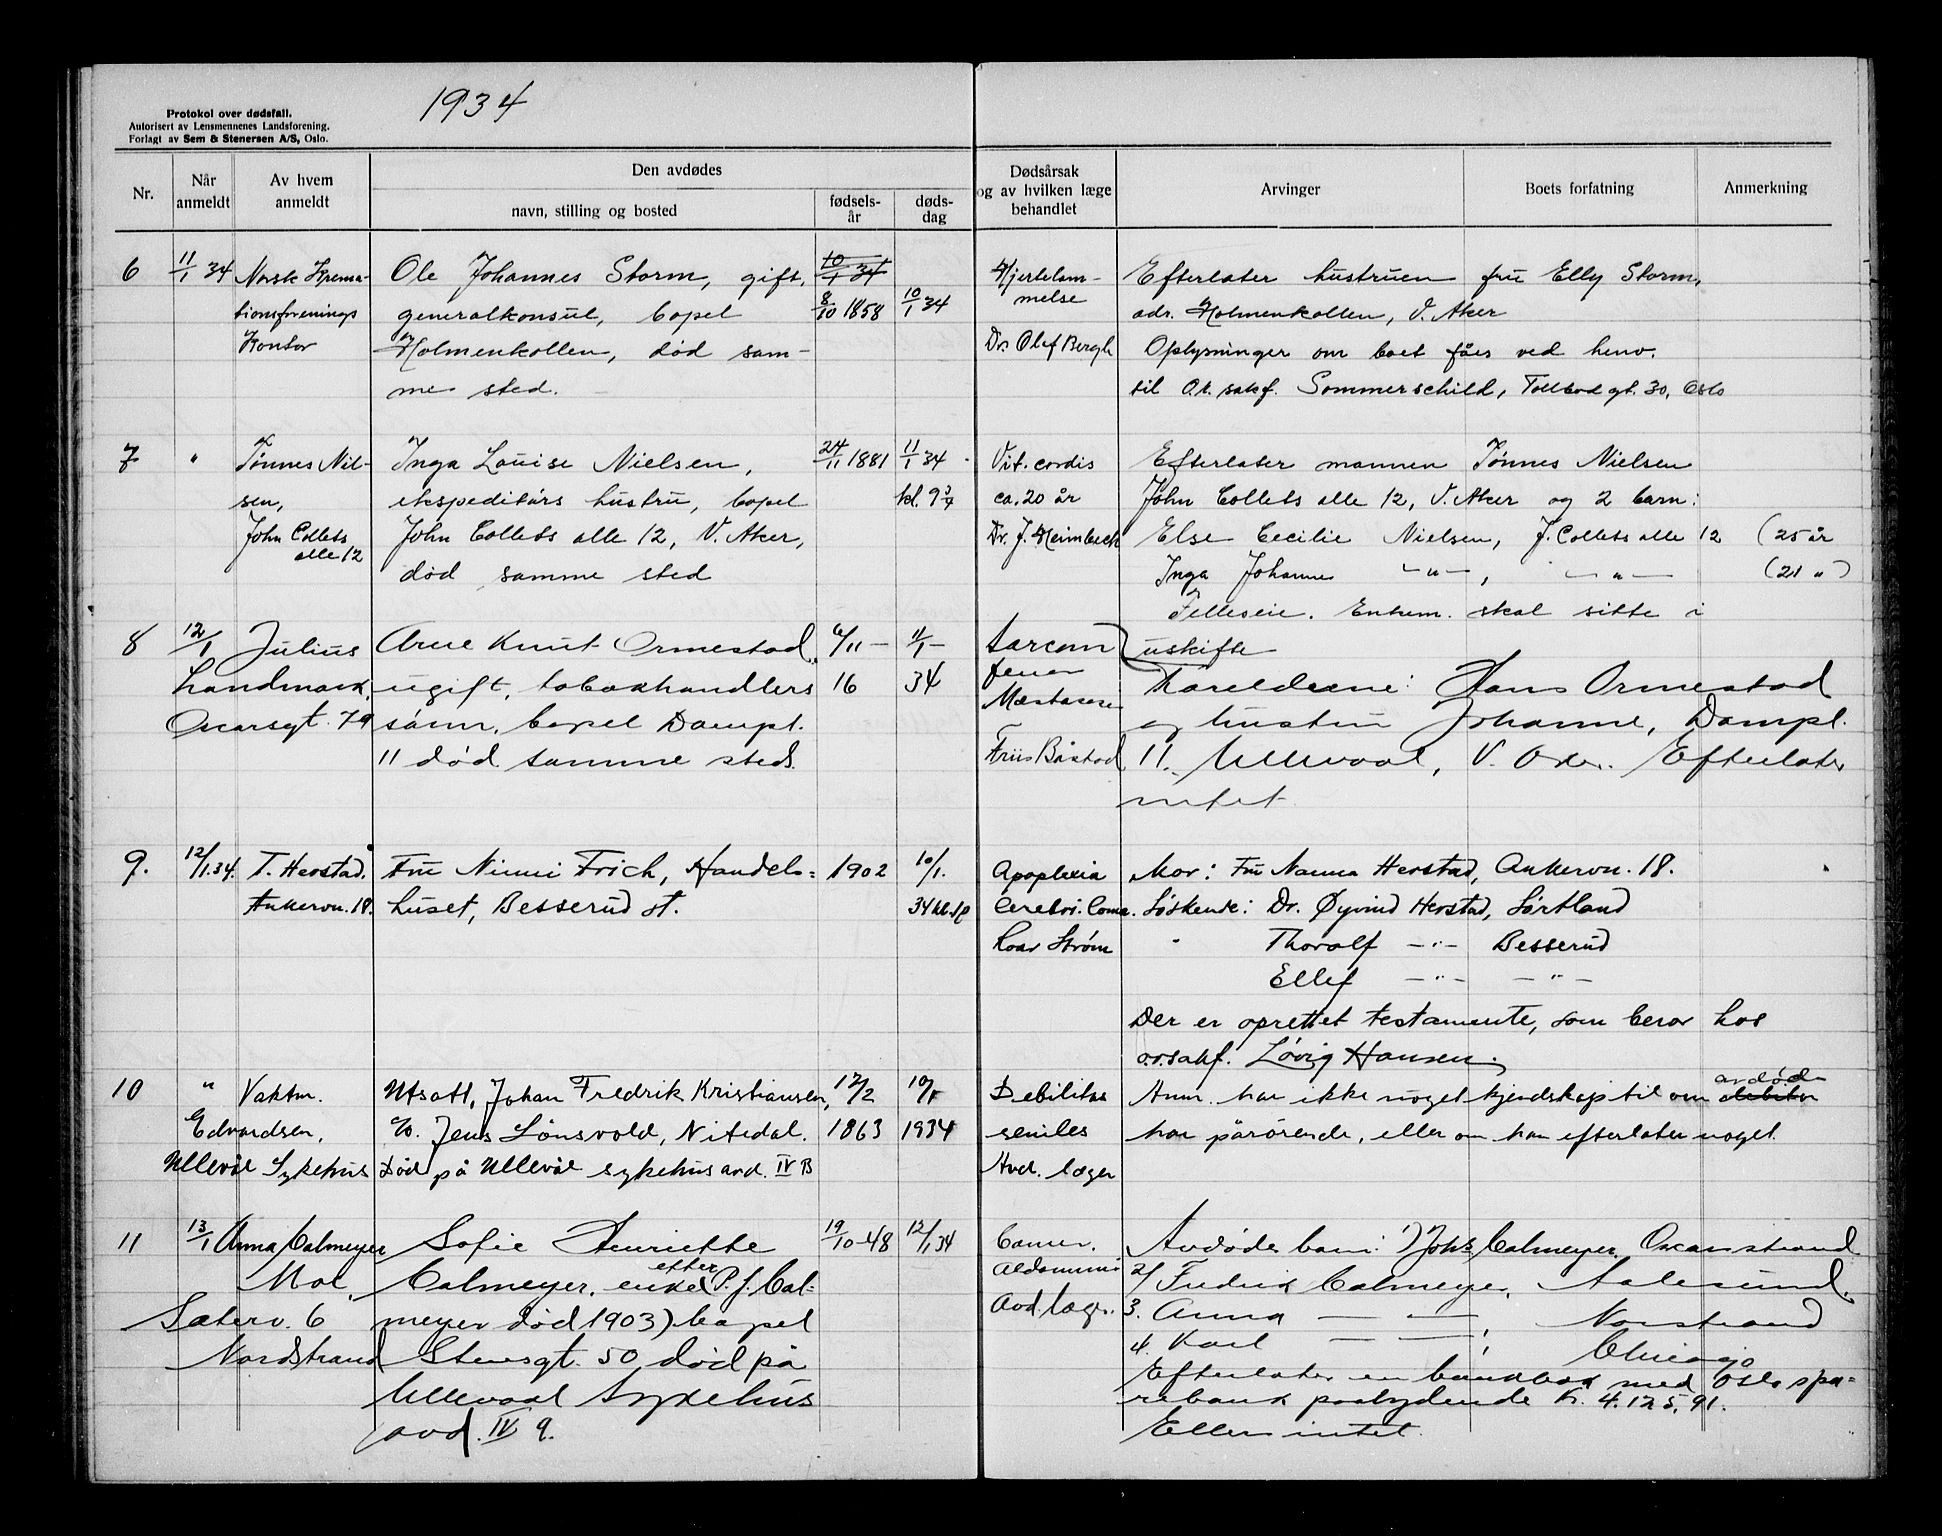 1934
Protokol over dødsfall.
Autorisert av Lensmennenes Landsforening.
Forlagt av Sem & Stenersen A/S, Oslo.
Nr.
Når anmeldt
Av hvem anmeldt
Den avdødes
navn, stilling og bosted
fødsels-år
døds-dag
Dødsårsak og av hvilken læge behandlet
Arvinger
Boets forfatning
Anmerkning
6 11/1 34 Norsk Krema- Ole Johannes Storm, gift, 10/1 34 Hjertelam- Efterlater hustruen fru Elly Storm,
tionsforenings generalkonsul, bopel 8/10 1858 10/1 34 melse adr. Holmenkollen, V. Aker
Kontor Holmenkollen, død sam- Dr. Olaf Bergh Oplysninger om boet fåes ved henv.
me sted. til O.r. sakf. Sommerschild, Tollbodgt. 30, Oslo
7 " Tønnes Niel- Inga Louise Nielsen, 24/11 1881 11/1 34 Vit. cordis Efterlater mannen Tønnes Nielsen
sen, ekspeditørs hustru, bopel kl. 9 3/4 ca. 20 år John Collets alle 12, V. Aker og 2 barn:
John Collets John Collets alle 12, V. Aker, Dr. J. Heimbeck Else Cecilie Nielsen, J. Collets alle 12 (25 år
alle 12 død samme sted Inga Johanne -"-, -"- (21 ")
Felleseie. Enkem. skal sitte i
8 12/1 Julius Arne Knut Ormestad, 6/11 - 11/1 - Sarcom uskifte
Landmark, ugift, tobakhandlers 16 34 femor Foreldrene: Hans Ormestad
Oscarsgt. 79 sønn, bopel Dampl. Metastaser og hustru Johanne, Dampl.
11 død samme sted. Friis Båstad 11, Ullevaal, V. Aker. Efterlater
intet.
9. 12/1.34. T. Herstad, Fru Ninni Frich, Handels= 1902 10/1. Apoplexia Mor: Fru Nanna Herstad, Ankervn. 18.
Ankervn. 18. huset, Besserud st. 34 kl. Cerebri. Coma. Søskende: Dr. Øyvind Herstad, Sørtland
Roar Strøm " Thoralf -"- Besserud
Ellef -"- -"-
Der er oprettet testamente, som beror hos
o.r.sakf. Løvig Hansen.
10 " Vaktm. Utsatt, Johan Fredrik Kristiansen, 17/2 10/1 Debilitas Anm. har ikke noget kjendskap til om avdøde
Edvardsen, c/o. Jens Lønsvold, Nitedal. 1863 1934 seniles har pårørende, eller om han efterlater noget.
Ullevål Sykehus Død på Ullevål sykehus avd. IV B Avd. læger
11 13/1 Anna Calmeyer Sofie Henriette 19/10-48 12/1 34 Cancer. Avdødes barn: 1) Johs. Calmeyer, Oscarstrand
Moe, Calmeyer, enke efter P. J. Cal- Abdominis 2/ Fredrik Calmeyer, Aalesund.
Sæterv. 6 meyer død 1903) bopel Avd. læger. 3. Anna — — Norstrand
Nordstrand Stensgt. 50 død på 4. Karl — —, Chicago
Ullevaal Sykehus Efterlater en bankbok med Oslo spa=
avd. IV 9. rebank paalydende kr. 4.125,91.
Ellers intet.